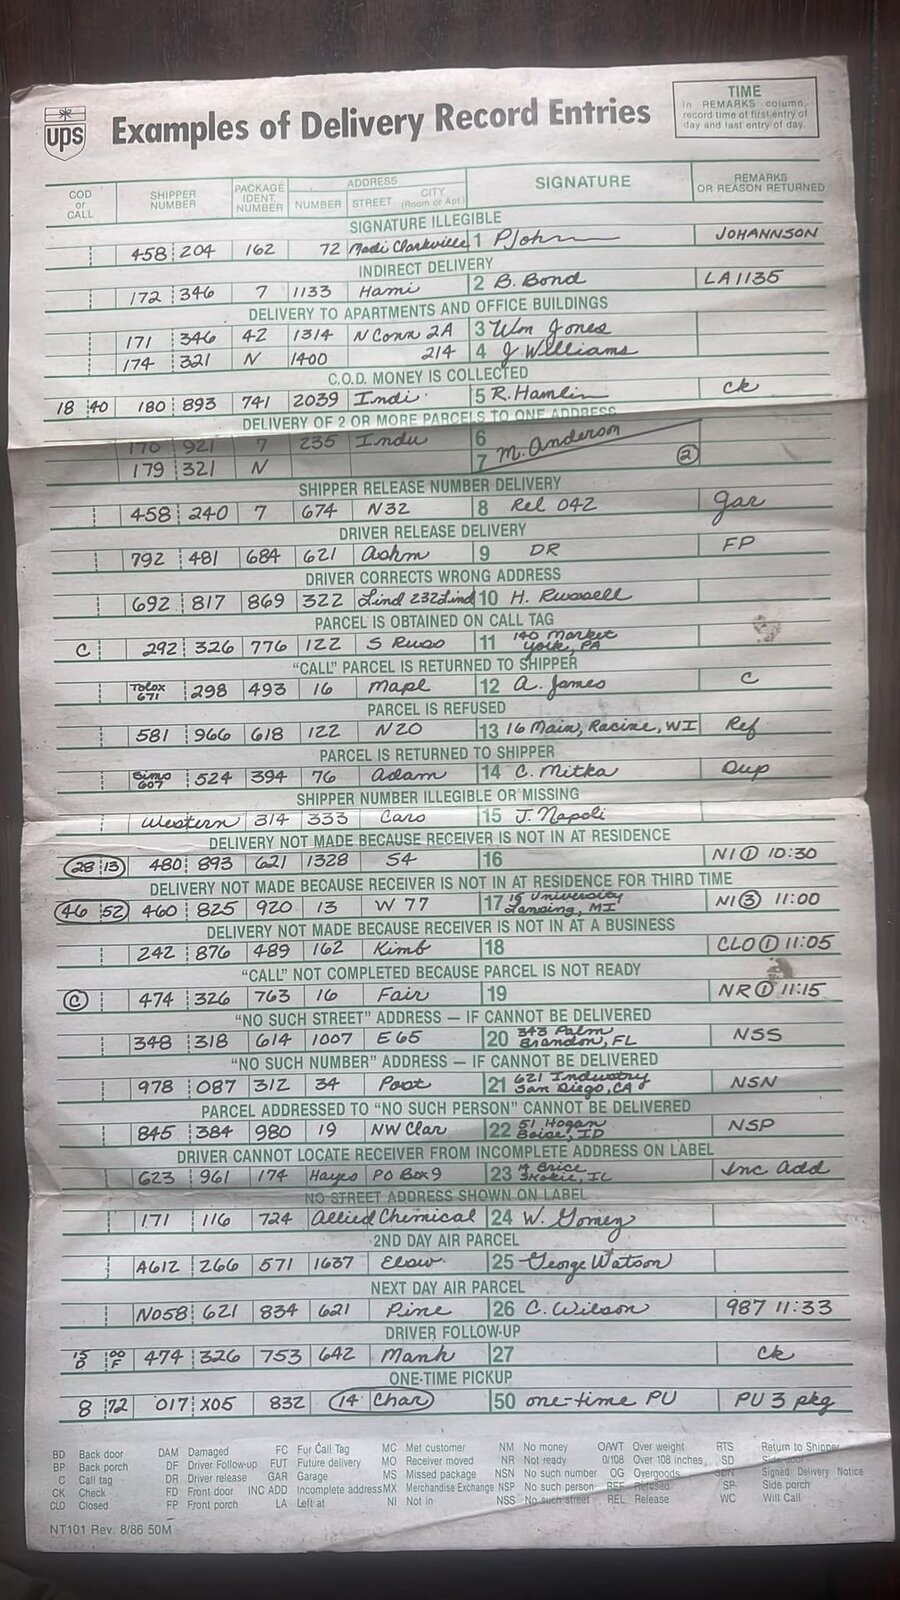 ups
Examples of Delivery Record Entries
TIME
In REMARKS column, record time of first entry of day and last entry of day.
COD or CALL SHIPPER NUMBER PACKAGE IDENT. NUMBER ADDRESS NUMBER STREET CITY (Room or Apt.) SIGNATURE REMARKS OR REASON RETURNED
SIGNATURE ILLEGIBLE
458 204 162 72 Madi Clarkville 1 P John JOHANNSON
INDIRECT DELIVERY
172 346 7 1133 Hami 2 B. Bond LA 1135
DELIVERY TO APARTMENTS AND OFFICE BUILDINGS
171 346 42 1314 N Conn 2A 3 Wm Jones
174 321 N 1400 214 4 J Williams
C.O.D. MONEY IS COLLECTED
18 40 180 893 741 2039 Indi 5 R. Hamlin ck
DELIVERY OF 2 OR MORE PARCELS TO ONE ADDRESS
170 921 7 235 Indu 6
179 321 N 7 M. Anderson 2
SHIPPER RELEASE NUMBER DELIVERY
458 240 7 674 N32 8 Rel 042 gar
DRIVER RELEASE DELIVERY
792 481 684 621 Ashm 9 DR FP
DRIVER CORRECTS WRONG ADDRESS
692 817 869 322 Lind 232 Lind 10 H. Russell
PARCEL IS OBTAINED ON CALL TAG
C 292 326 776 122 S Russ 11 140 Market York, PA
"CALL" PARCEL IS RETURNED TO SHIPPER
Tolox 671 298 493 16 Mapl 12 A. James C
PARCEL IS REFUSED
581 966 618 122 N20 13 16 Main, Racine, WI Ref
PARCEL IS RETURNED TO SHIPPER
Sims 607 524 394 76 Adam 14 C. Mitka Dup
SHIPPER NUMBER ILLEGIBLE OR MISSING
Western 314 333 Caro 15 J. Napoli
DELIVERY NOT MADE BECAUSE RECEIVER IS NOT IN AT RESIDENCE
28 13 480 893 621 1328 S4 16 NI 1 10:30
DELIVERY NOT MADE BECAUSE RECEIVER IS NOT IN AT RESIDENCE FOR THIRD TIME
46 52 460 825 920 13 W 77 17 15 University Lansing, MI NI 3 11:00
DELIVERY NOT MADE BECAUSE RECEIVER IS NOT IN AT A BUSINESS
242 876 489 162 Kimb 18 CLO 1 11:05
"CALL" NOT COMPLETED BECAUSE PARCEL IS NOT READY
C 474 326 763 16 Fair 19 NR 1 11:15
"NO SUCH STREET" ADDRESS — IF CANNOT BE DELIVERED
348 318 614 1007 E65 20 343 Palm Brandon, FL NSS
"NO SUCH NUMBER" ADDRESS — IF CANNOT BE DELIVERED
978 087 312 34 Post 21 621 Industry San Diego, CA NSN
PARCEL ADDRESSED TO "NO SUCH PERSON" CANNOT BE DELIVERED
845 384 980 19 NW Clar 22 51 Hogan Boise, ID NSP
DRIVER CANNOT LOCATE RECEIVER FROM INCOMPLETE ADDRESS ON LABEL
623 961 174 Hayes PO Box 9 23 Brice Skokie, IL Inc Add
NO STREET ADDRESS SHOWN ON LABEL
171 116 724 Allied Chemical 24 W. Gomez
2ND DAY AIR PARCEL
A612 266 571 1637 Elsw 25 George Watson
NEXT DAY AIR PARCEL
N058 621 834 621 Pine 26 C. Wilson 987 11:33
DRIVER FOLLOW-UP
15 D 00 F 474 326 753 642 Mank 27 ck
ONE-TIME PICKUP
8 72 017 X05 832 14 Char 50 one-time PU PU 3 pkg
BD Back door DAM Damaged FC Fur Call Tag MC Met customer NM No money O/WT Over weight RTS Return to Shipper
BP Back porch DF Driver Follow-up FUT Future delivery MO Receiver moved NR Not ready O/108 Over 108 inches SD Side door
C Call tag DR Driver release GAR Garage MS Missed package NSN No such number OG Overgoods SDN Signed Delivery Notice
CK Check FD Front door INC ADD Incomplete address MX Merchandise Exchange NSP No such person REF Refused SP Side porch
CLO Closed FP Front porch LA Left at NI Not in NSS No such street REL Release WC Will Call
NT101 Rev. 8/86 50M